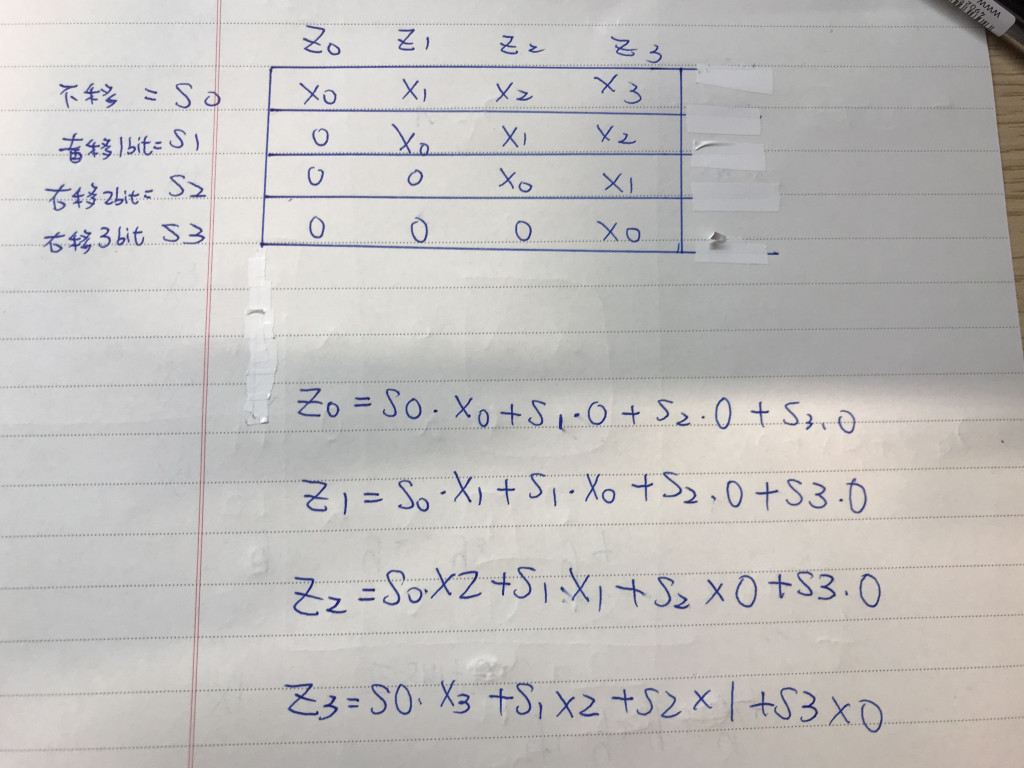 Z0 Z1 Z2 Z3
不移 = S0 X0 X1 X2 X3
右移1bit= S1 0 X0 X1 X2
右移2bit= S2 0 0 X0 X1
右移3bit S3 0 0 0 X0
Z0 = S0·X0+S1·0+S2·0+S3.0
Z1 = S0·X1+S1·X0+S2.0+S3.0
Z2=S0·X2+S1·X1+S2X0+S3.0
Z3=S0·X3+S1X2+S2X1+S3X0